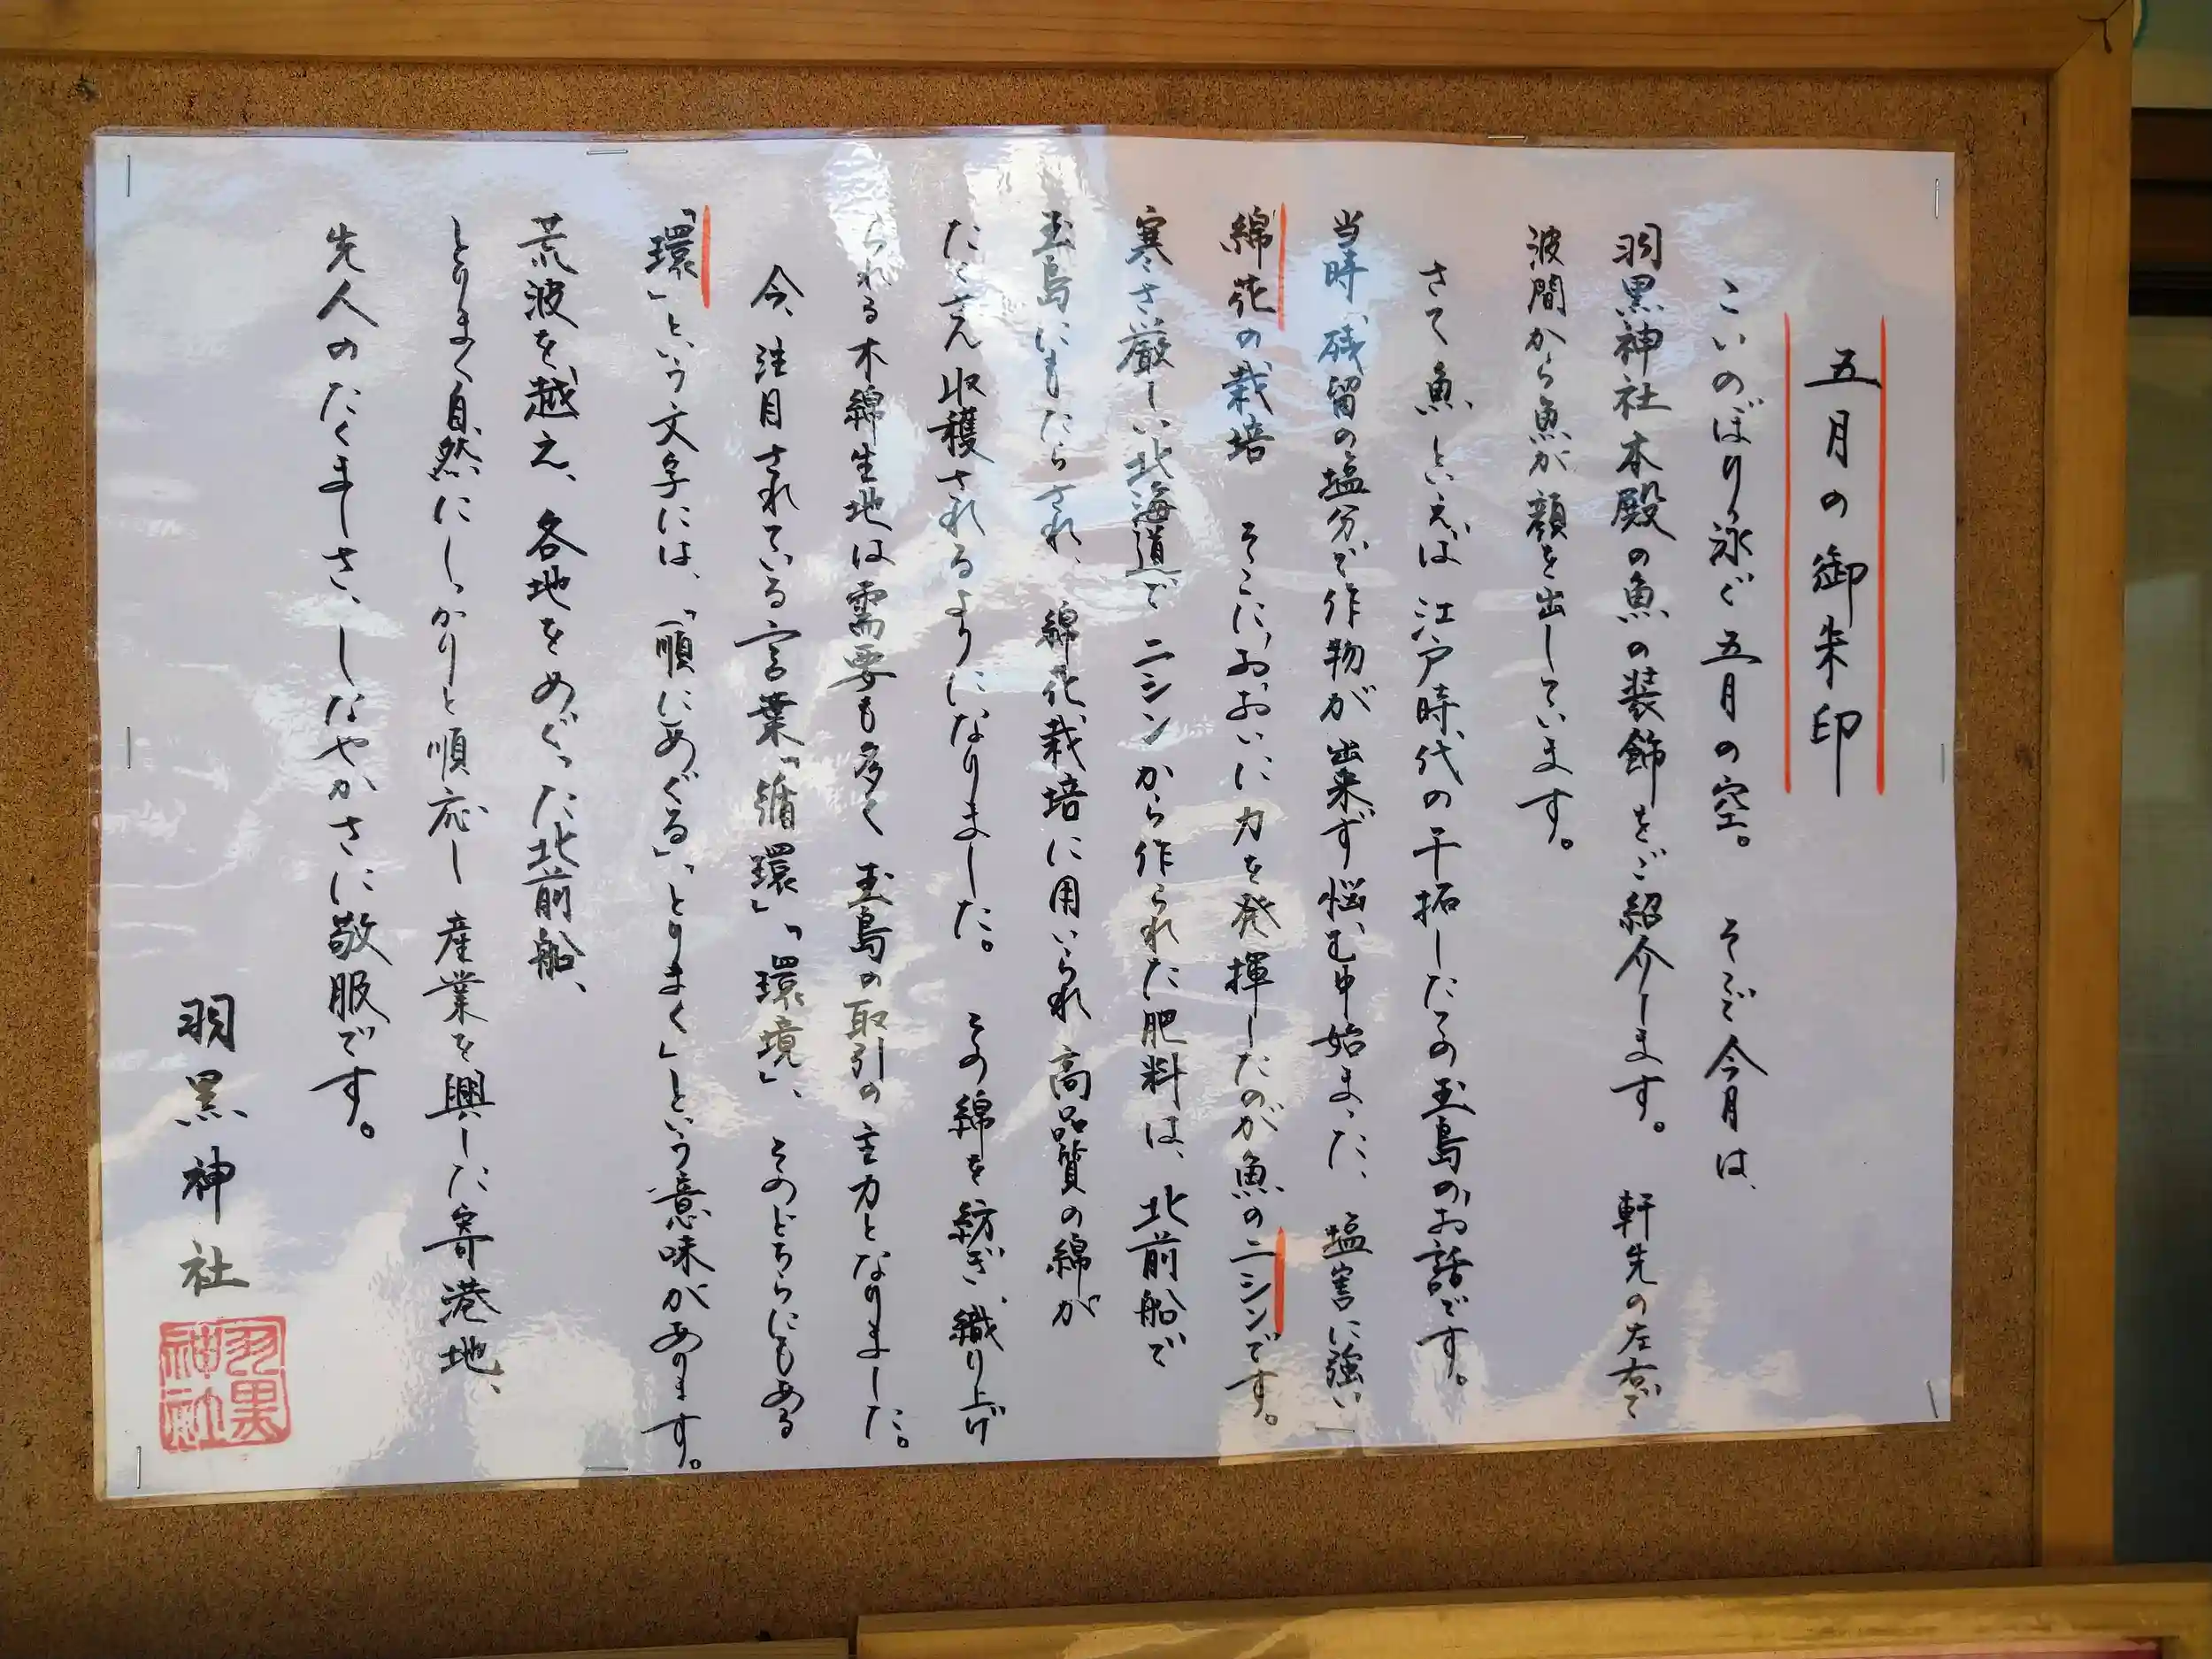 五月の御朱印
こいのぼり泳ぐ五月の空。 そこで今月は、
羽黒神社本殿の魚の装飾をご紹介します。 軒先の左右で
波間から魚が顔を出しています。
さて魚といえば 江戸時代の干拓したての玉島のお話です。
当時、残留の塩分で作物が出来ず悩む中始まった、塩害に強い
綿花の栽培 そこに、おおいに力を発揮したのが魚のニシンです。
寒さ厳しい北海道で ニシンから作られた肥料は、北前船で
玉島にもたらされ、綿花栽培に用いられ 高品質の綿が
たくさん収穫されるようになりました。 その綿を紡ぎ、織り上げ
られる木綿生地は需要も多く 玉島の取引の主力となりました。
今、注目されている言葉「循環」、「環境」、 そのどちらにもある
「環」という文字には、「順にめぐる」、とりまく」という意味があります。
荒波を越え、各地をめぐった北前船、
とりまく自然にしっかりと順応し 産業を興した寄港地、
先人のたくましさ、しなやかさに敬服です。
羽黒神社
羽黒
神社